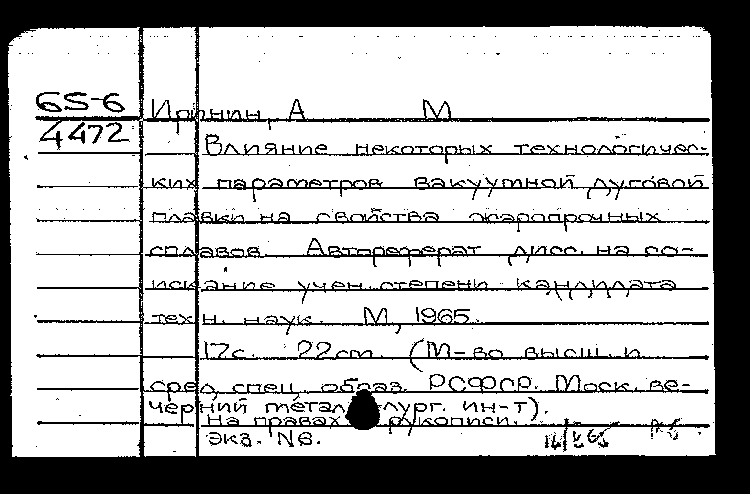 65-6
4472
А М
Влияние некоторых технологичес-
ких параметров вакуумной дуговой
плавки на свойства жаропрочных
сплавов. Автореферат дисс. на со-
искание учен. степени кандидата
техн. наук. М, 1965.
17с. 22cm. (М-во высш. и
сред. спец. образ. РСФСР. Моск. ве-
черний металлург. ин-т).
На правах рукописи.
экз. №6.